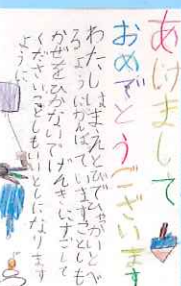 あけまして
おめでとうございます
わたしは、まえとびでひゃかいとべ
るようにがんばています。ことしも
かぜをひかないでげんきにすごして
ください。ことしもいいとしになります
ように。